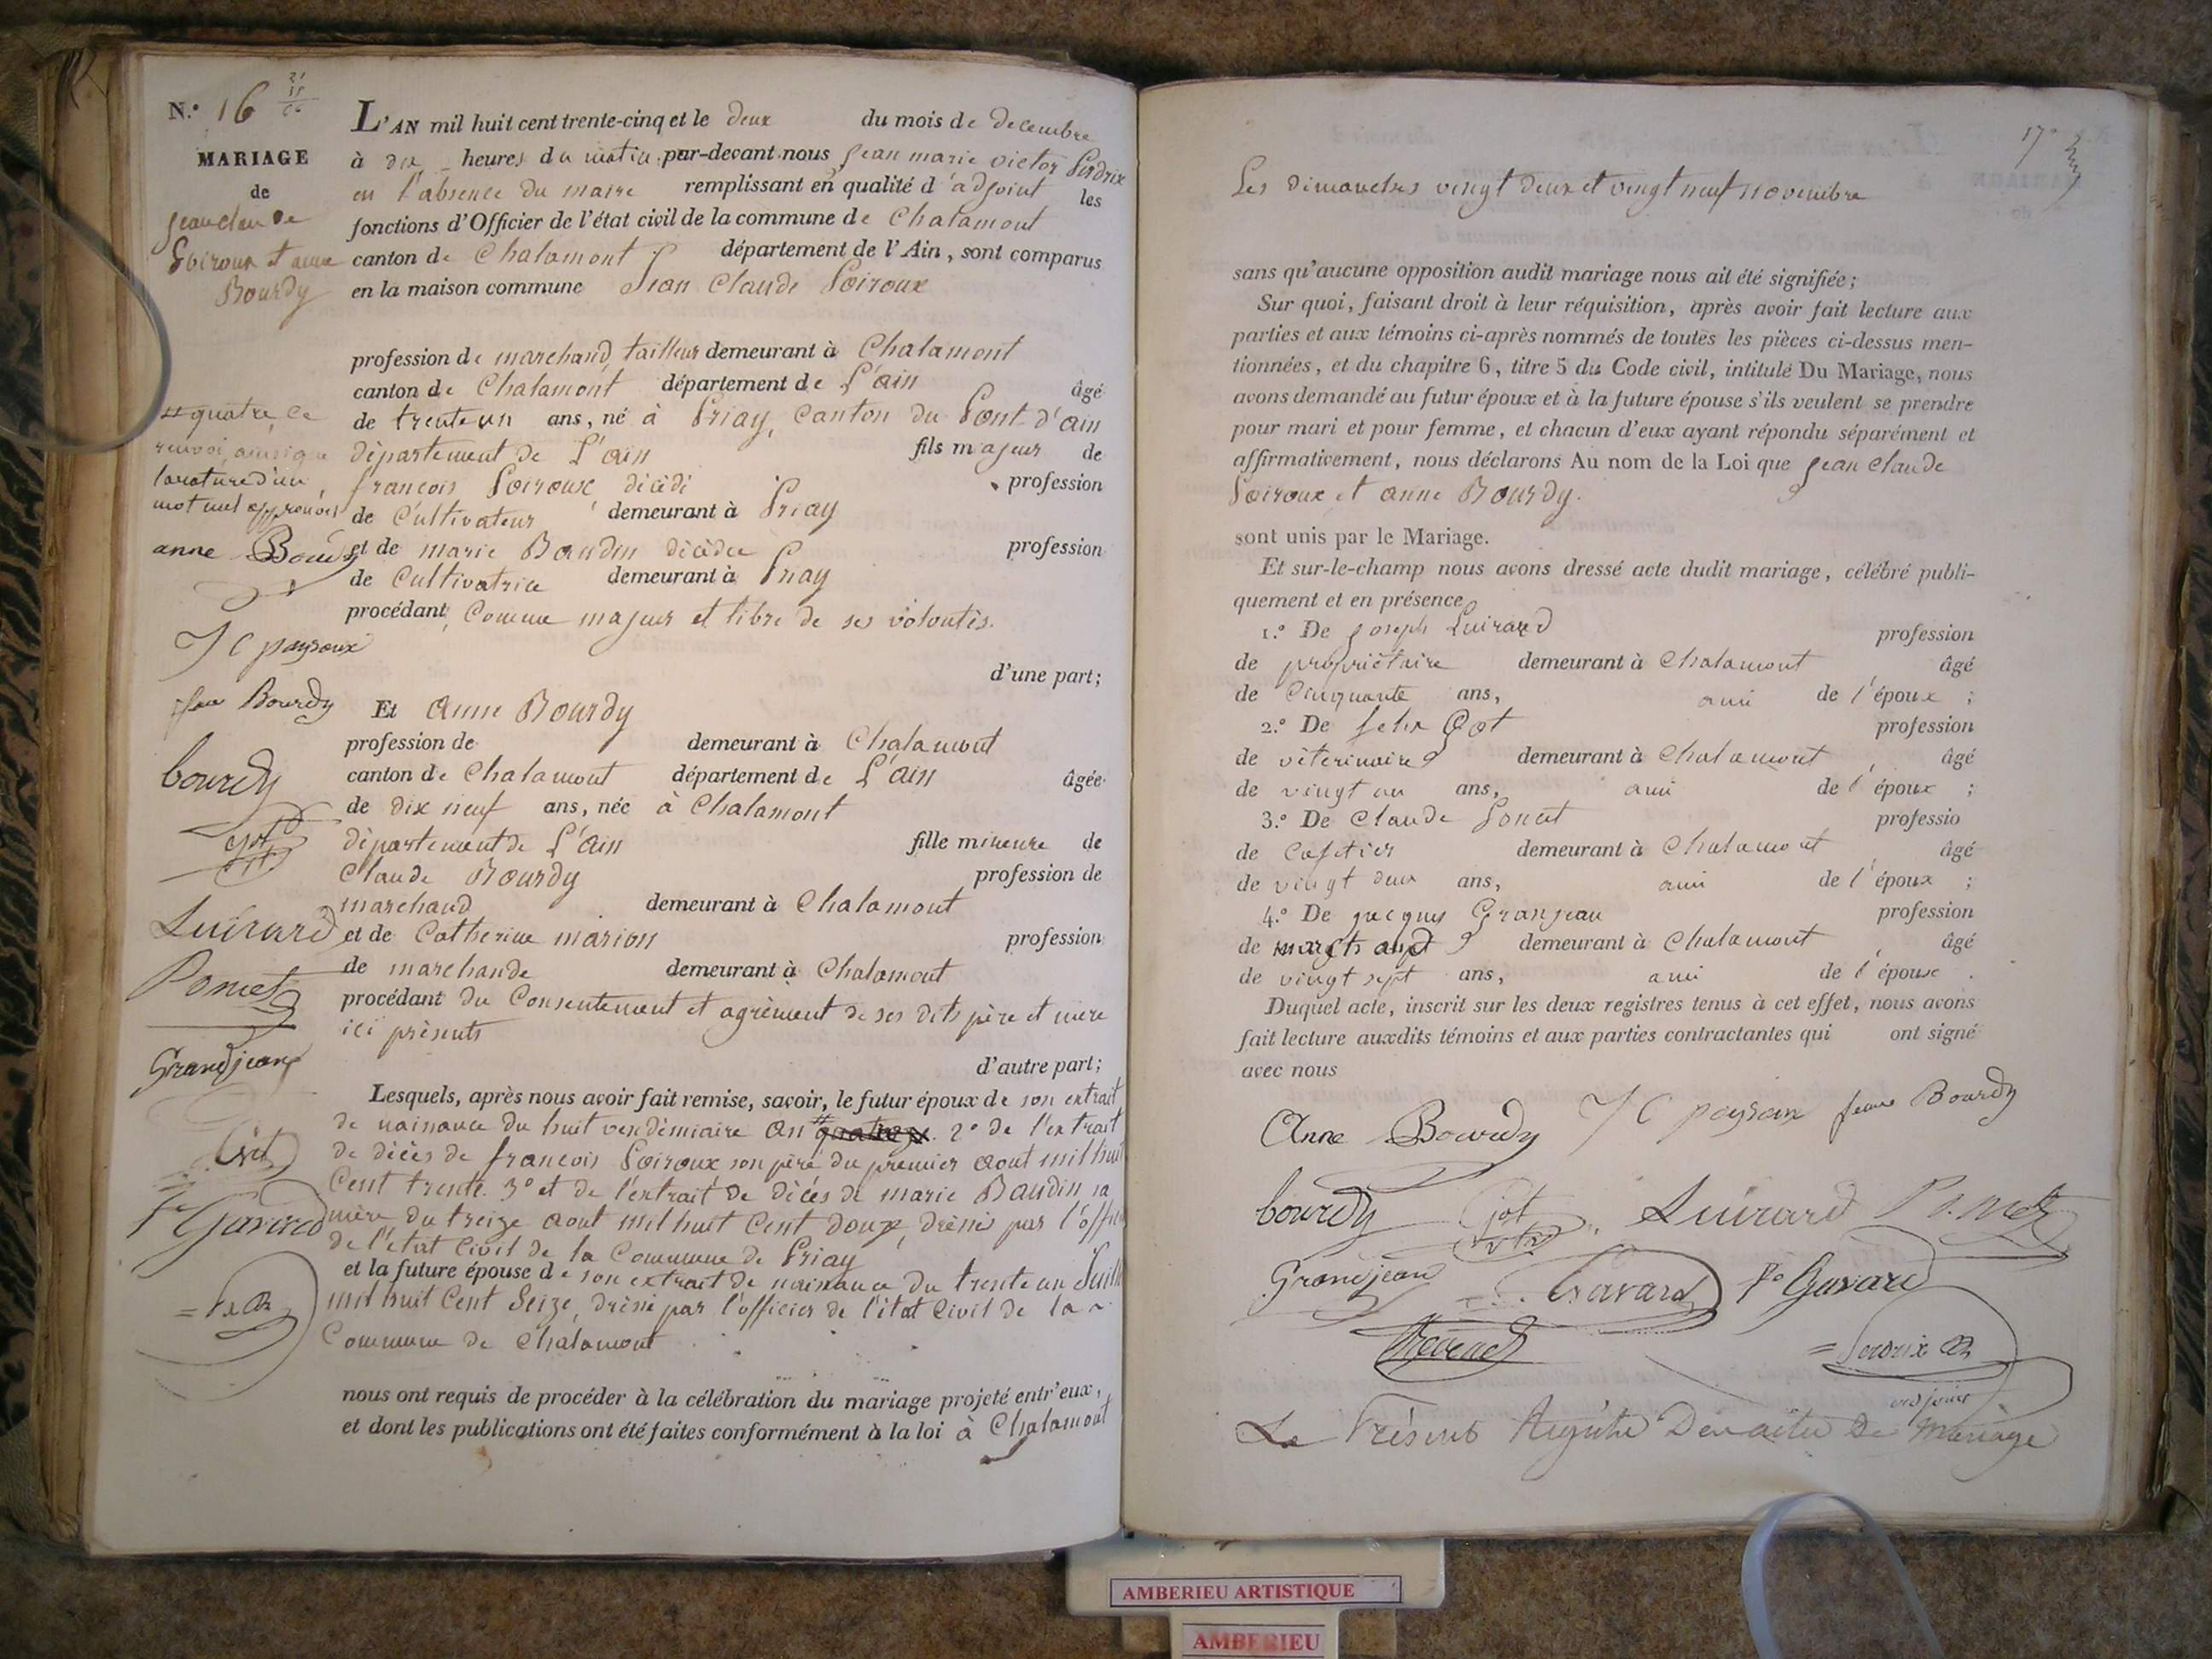 N.° 16
MARIAGE
de
jean claude
Poiroux et anne
Bourdy
L'AN mil huit cent trente-cinq et le deux du mois de decembre
à dix heures du matin par-devant nous jean marie victor Perdrix
en l'absence du maire remplissant en qualité d'adjoint les
fonctions d'Officier de l'état civil de la commune de Chalamont
canton de Chalamont département de l'Ain, sont comparus
en la maison commune Jean Claude Poiroux
profession de marchand tailleur demeurant à Chalamont
canton de Chalamont département de L'ain âgé
de trente un ans, né à Priay, Canton du Pont d'ain
département de L'ain fils majeur de
françois Poiroux décédé profession
de Cultivateur demeurant à Priay
et de marie Baudin décédée profession
de Cultivatrice demeurant à Priay
procédant Comme majeur et libre de ses volontés.
d'une part;
Et Anne Bourdy
profession de demeurant à Chalamont
canton de Chalamont département de L'ain âgée
de dix neuf ans, née à Chalamont
département de L'ain fille mineure de
Claude Bourdy profession de
marchand demeurant à Chalamont
et de Catherine marion profession
de marchande demeurant à Chalamont
procédant du Consentement et agrément de ses dits père et mère
ici présents
d'autre part;
Lesquels, après nous avoir fait remise, savoir, le futur époux de son extrait
de naissance du huit vendémiaire an 2° de l'extrait
de décès de françois Poiroux son père du premier aout mil huit
Cent trente. 3° et de l'extrait de décès de marie Baudin sa
mère du treize aout mil huit Cent douze, dréssé par l'officier
de l'état Civil de la Commune de Priay
et la future épouse de son extrait de naissance du trente un Juillet
mil huit Cent Seize, dréssé par l'officier de l'état Civil de la
Commune de Chalamont
nous ont requis de procéder à la célébration du mariage projeté entr'eux,
et dont les publications ont été faites conformément à la loi à Chalamont
# quatre, Ce
renvoi, ainsi que
la rature d'un
mot nul approuvés
anne Bourdy
J C poyroux
feme Bourdy
bourdy
got
vtr
Luirard
Ponset
Grandjean
fe Gavard
17
Les dimanches vingt deux et vingt neuf novembre
sans qu'aucune opposition audit mariage nous ait été signifiée;
Sur quoi, faisant droit à leur réquisition, après avoir fait lecture aux
parties et aux témoins ci-après nommés de toutes les pièces ci-dessus men-
tionnées, et du chapitre 6, titre 5 du Code civil, intitulé Du Mariage, nous
avons demandé au futur époux et à la future épouse s'ils veulent se prendre
pour mari et pour femme, et chacun d'eux ayant répondu séparément et
affirmativement, nous déclarons Au nom de la Loi que jean Claude
Poiroux et anne Bourdy.
sont unis par le Mariage.
Et sur-le-champ nous avons dressé acte dudit mariage, célébré publi-
quement et en présence
1.° De joseph Luirard profession
de propriétaire demeurant à Chalamont âgé
de Cinquante ans, ami de l'époux ;
2.° De felix Got profession
de vétérinaire demeurant à Chalamont âgé
de vingt un ans, ami de l'époux ;
3.° De Claude Poncet professio
de Cafetier demeurant à Chalamont âgé
de vingt deux ans, ami de l'époux ;
4.° De jacques Granjean profession
de marchand demeurant à Chalamont âgé
de vingt sept ans, ami de l'épouse .
Duquel acte, inscrit sur les deux registres tenus à cet effet, nous avons
fait lecture auxdits témoins et aux parties contractantes qui ont signé
avec nous
Anne Bourdy J C poyroux feme Bourdy
bourdy got vtr Luirard
Grandjean Gavard fe Gavard
Perdrix
adjoint
Le Présent Registre De Mariage
AMBERIEU ARTISTIQUE
AMBERIEU